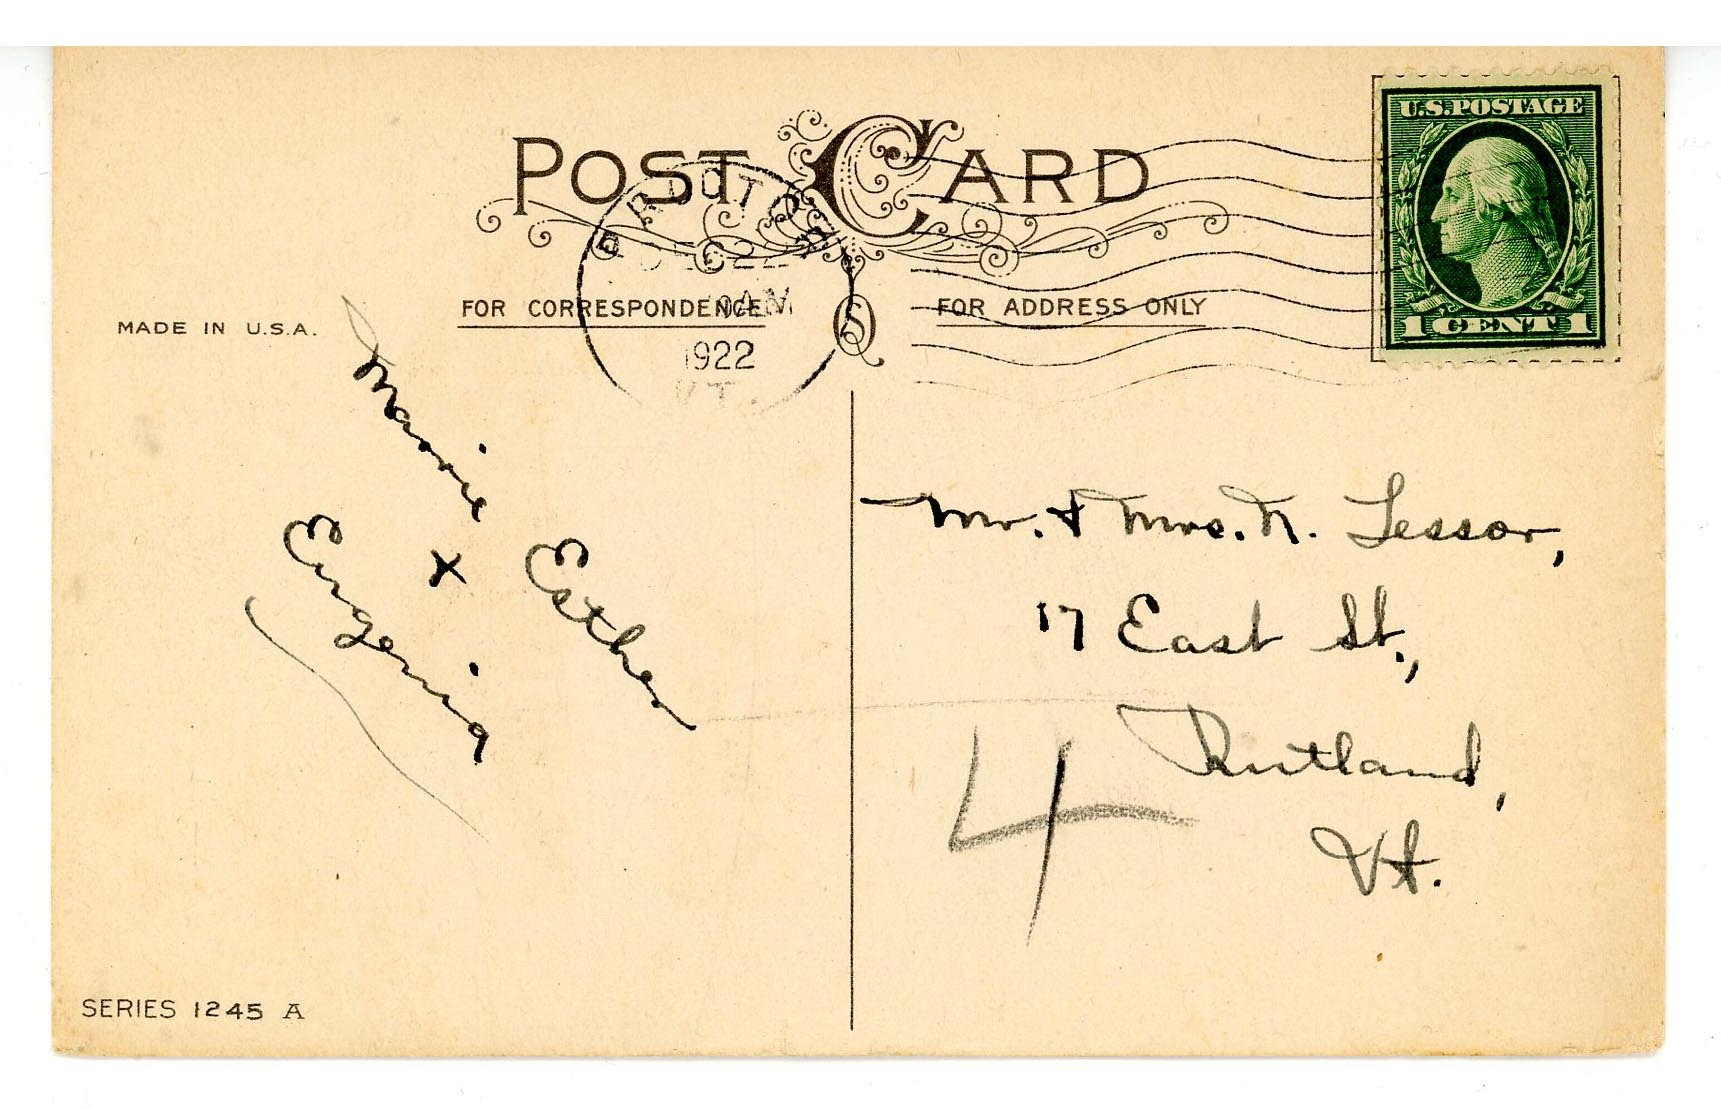 POST CARD
U.S. POSTAGE
1 CENT 1
PROCTOR
DEC 22
AM
1922
VT.
MADE IN U.S.A.
FOR CORRESPONDENCE
FOR ADDRESS ONLY
Marie
x
Esther
Eugenia
Mr. & Mrs. N. Lessor,
17 East St.,
Rutland,
Vt.
4
SERIES 1245 A